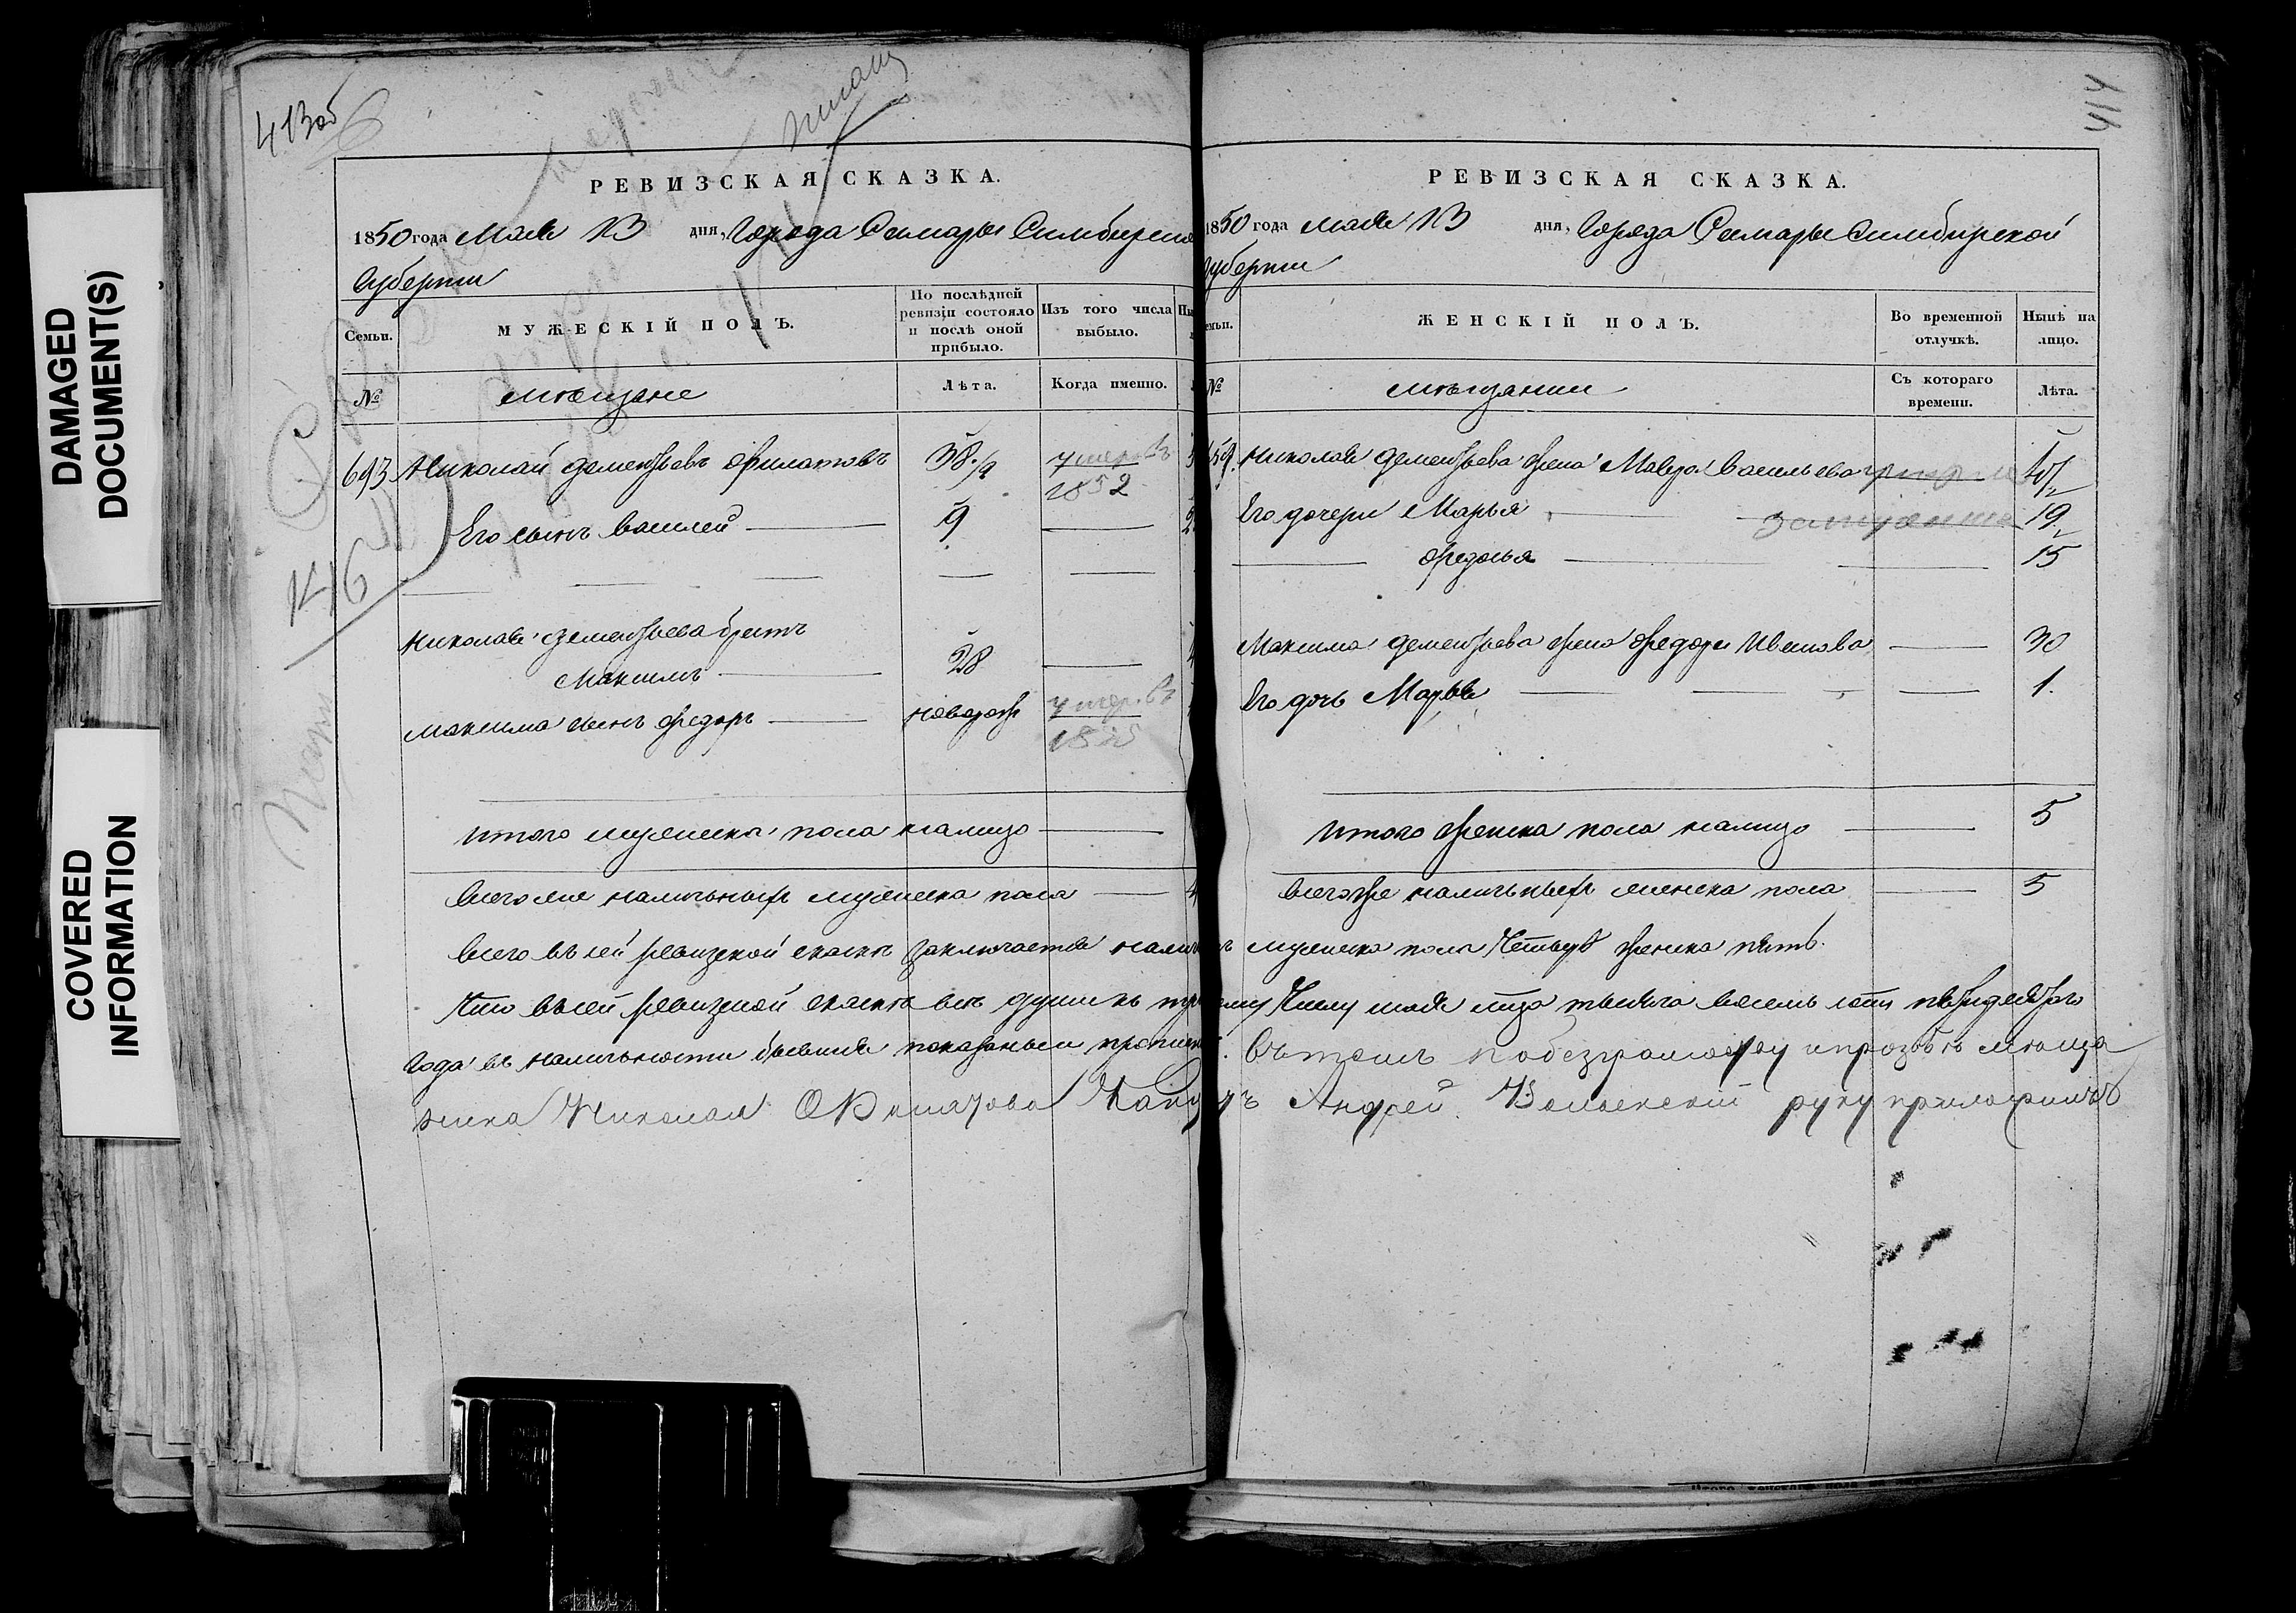 DAMAGED
DOCUMENT(S)
COVERED
INFORMATION
413 об
РЕВИЗСКАЯ СКАЗКА.
1850 года Мая 13 дня, Города Самары Симбирской
Губернии
Семьи.
МУЖЕСКІЙ ПОЛЪ.
По послѣдней
ревизіи состояло
и послѣ оной
прибыло.
Изъ того числа
выбыло.
№
мѣщане
Лѣта.
Когда именно.
693 Николай Дементьевъ Филатовъ 38 умеръ въ
1852
Его сынъ Василей 9
Николая Дементьева братъ
Максимъ 28
Максима сынъ Федоръ новорож умер. въ
Итого мужеска пола налицо
Всего же наличныхъ мужеска пола 4
414
РЕВИЗСКАЯ СКАЗКА.
1850 года мая 13 дня, Города Самары Симбирской
Губернии
ЖЕНСКІЙ ПОЛЪ.
Во временной
отлучкѣ.
Нынѣ на
лицо.
№
мѣщанки
Съ котораго
времени.
Лѣта.
Николая Дементьева жена Мавра Васильева 40
Его дочери Марья замужемъ 19
Федосья 15
Максима Дементьева жена Федора Иванова 30
Его дочь Марья 1.
Итого женска пола налицо 5
Всего же наличныхъ женска пола 5
Всего въ сей ревизской сказкѣ заключается налич мужеска пола четыре женска пять.
Что въ сей ревизской сказкѣ всѣ души къ му числу мая м̃ца тысяча восемь сотъ пятидесятого
года въ наличности бывшия показаны и пропис. Въ томъ по безграмотству и прозьбѣ мѣща
нина Николая Филатова Андрей руку приложилъ